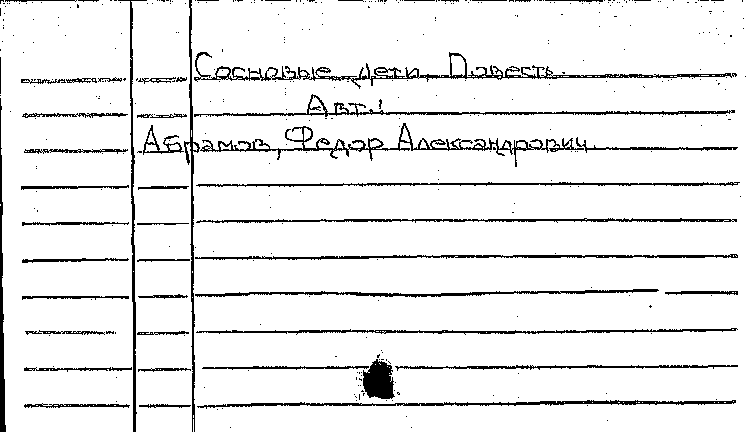 Сосновые дети. Повесть.
Авт.:
Абрамов, Федор Александрович.